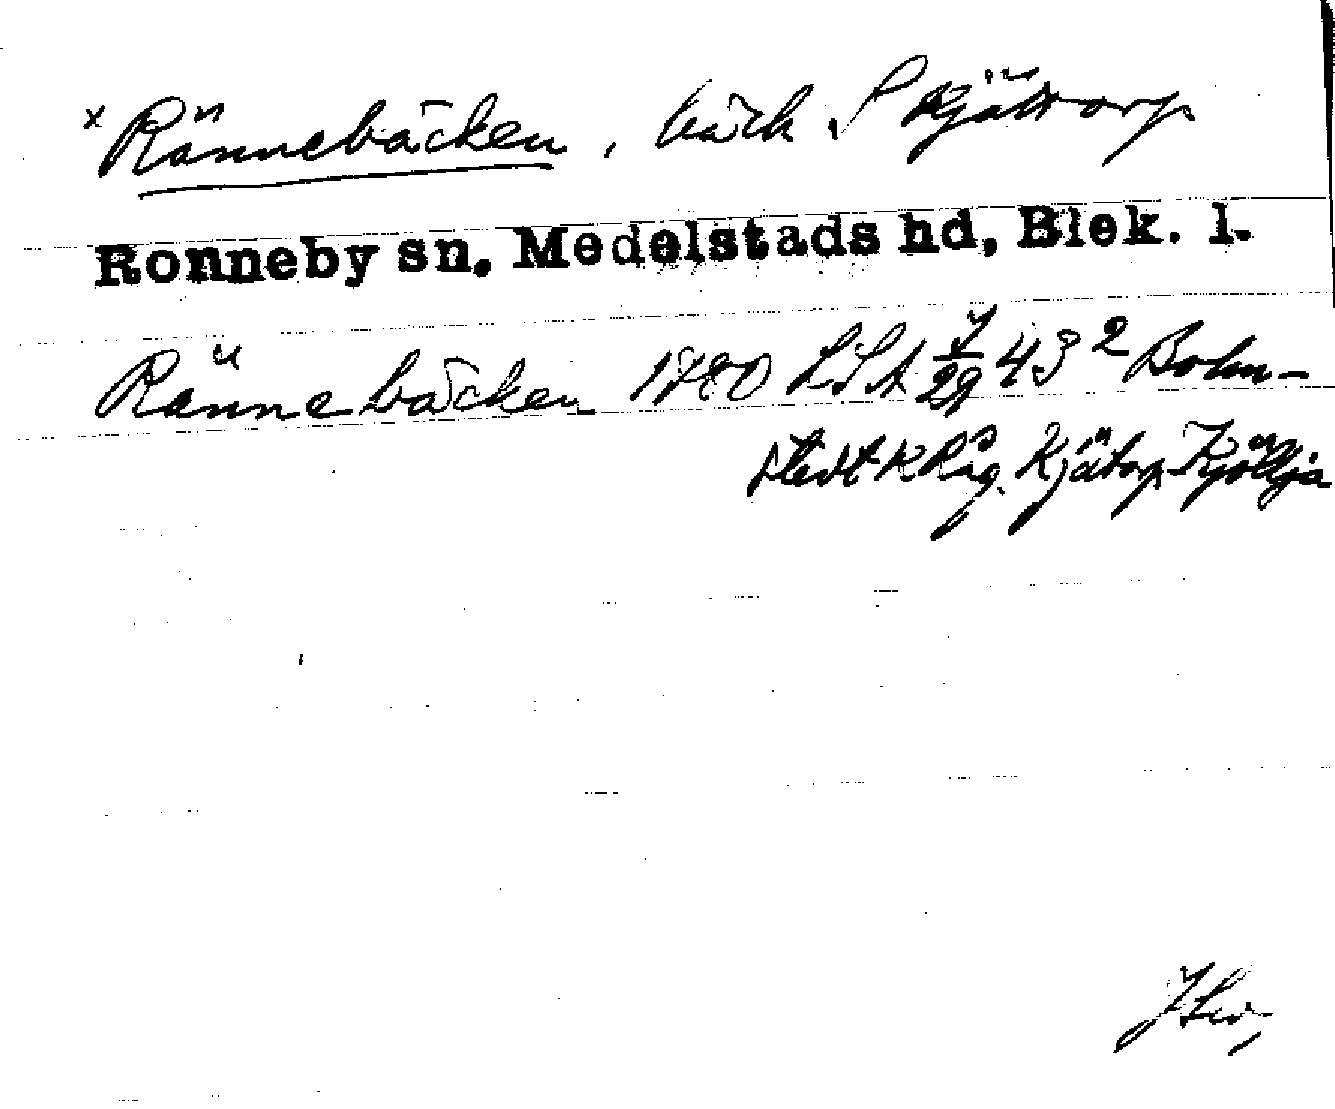 x Rännebäcken, bäck, S Kjättorp
Ronneby sn. Medelstads hd, Blek. l.
Rännebäcken 1780 LSA 29 43² Bolm-
stedt K Råg. Kjätorp